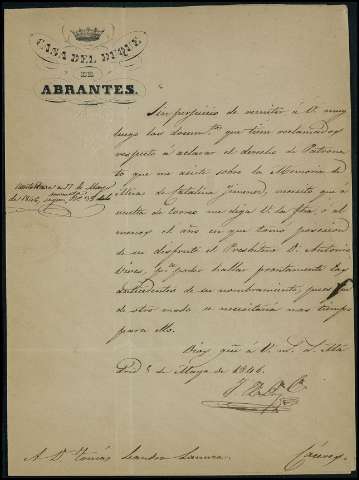 CASA DEL DUQUE
DE
ABRANTES.
Sin perjuicio de remitir á V. muy
luego los docum.tos que tiene reclamados
respecto á aclarar el derecho de Patrona
to que me asiste sobre la Memoria de
Misas de Catalina Jimenez, necesito que á
vuelta de correo me diga V. la fha, ó al
menos el año en que tomó posesion
de su disfrute el Presbitero D. Antonio
Vives, p.a poder hallar prontamente los
antecedentes de su nombramiento, pues que
de otro modo se necesitaria mas tiempo
para ello.
Dios gue á V. m.s a.s Ma
drid 5 de Mayo de 1846.
de 1846,
A D. Tomás Leandro
Cáceres